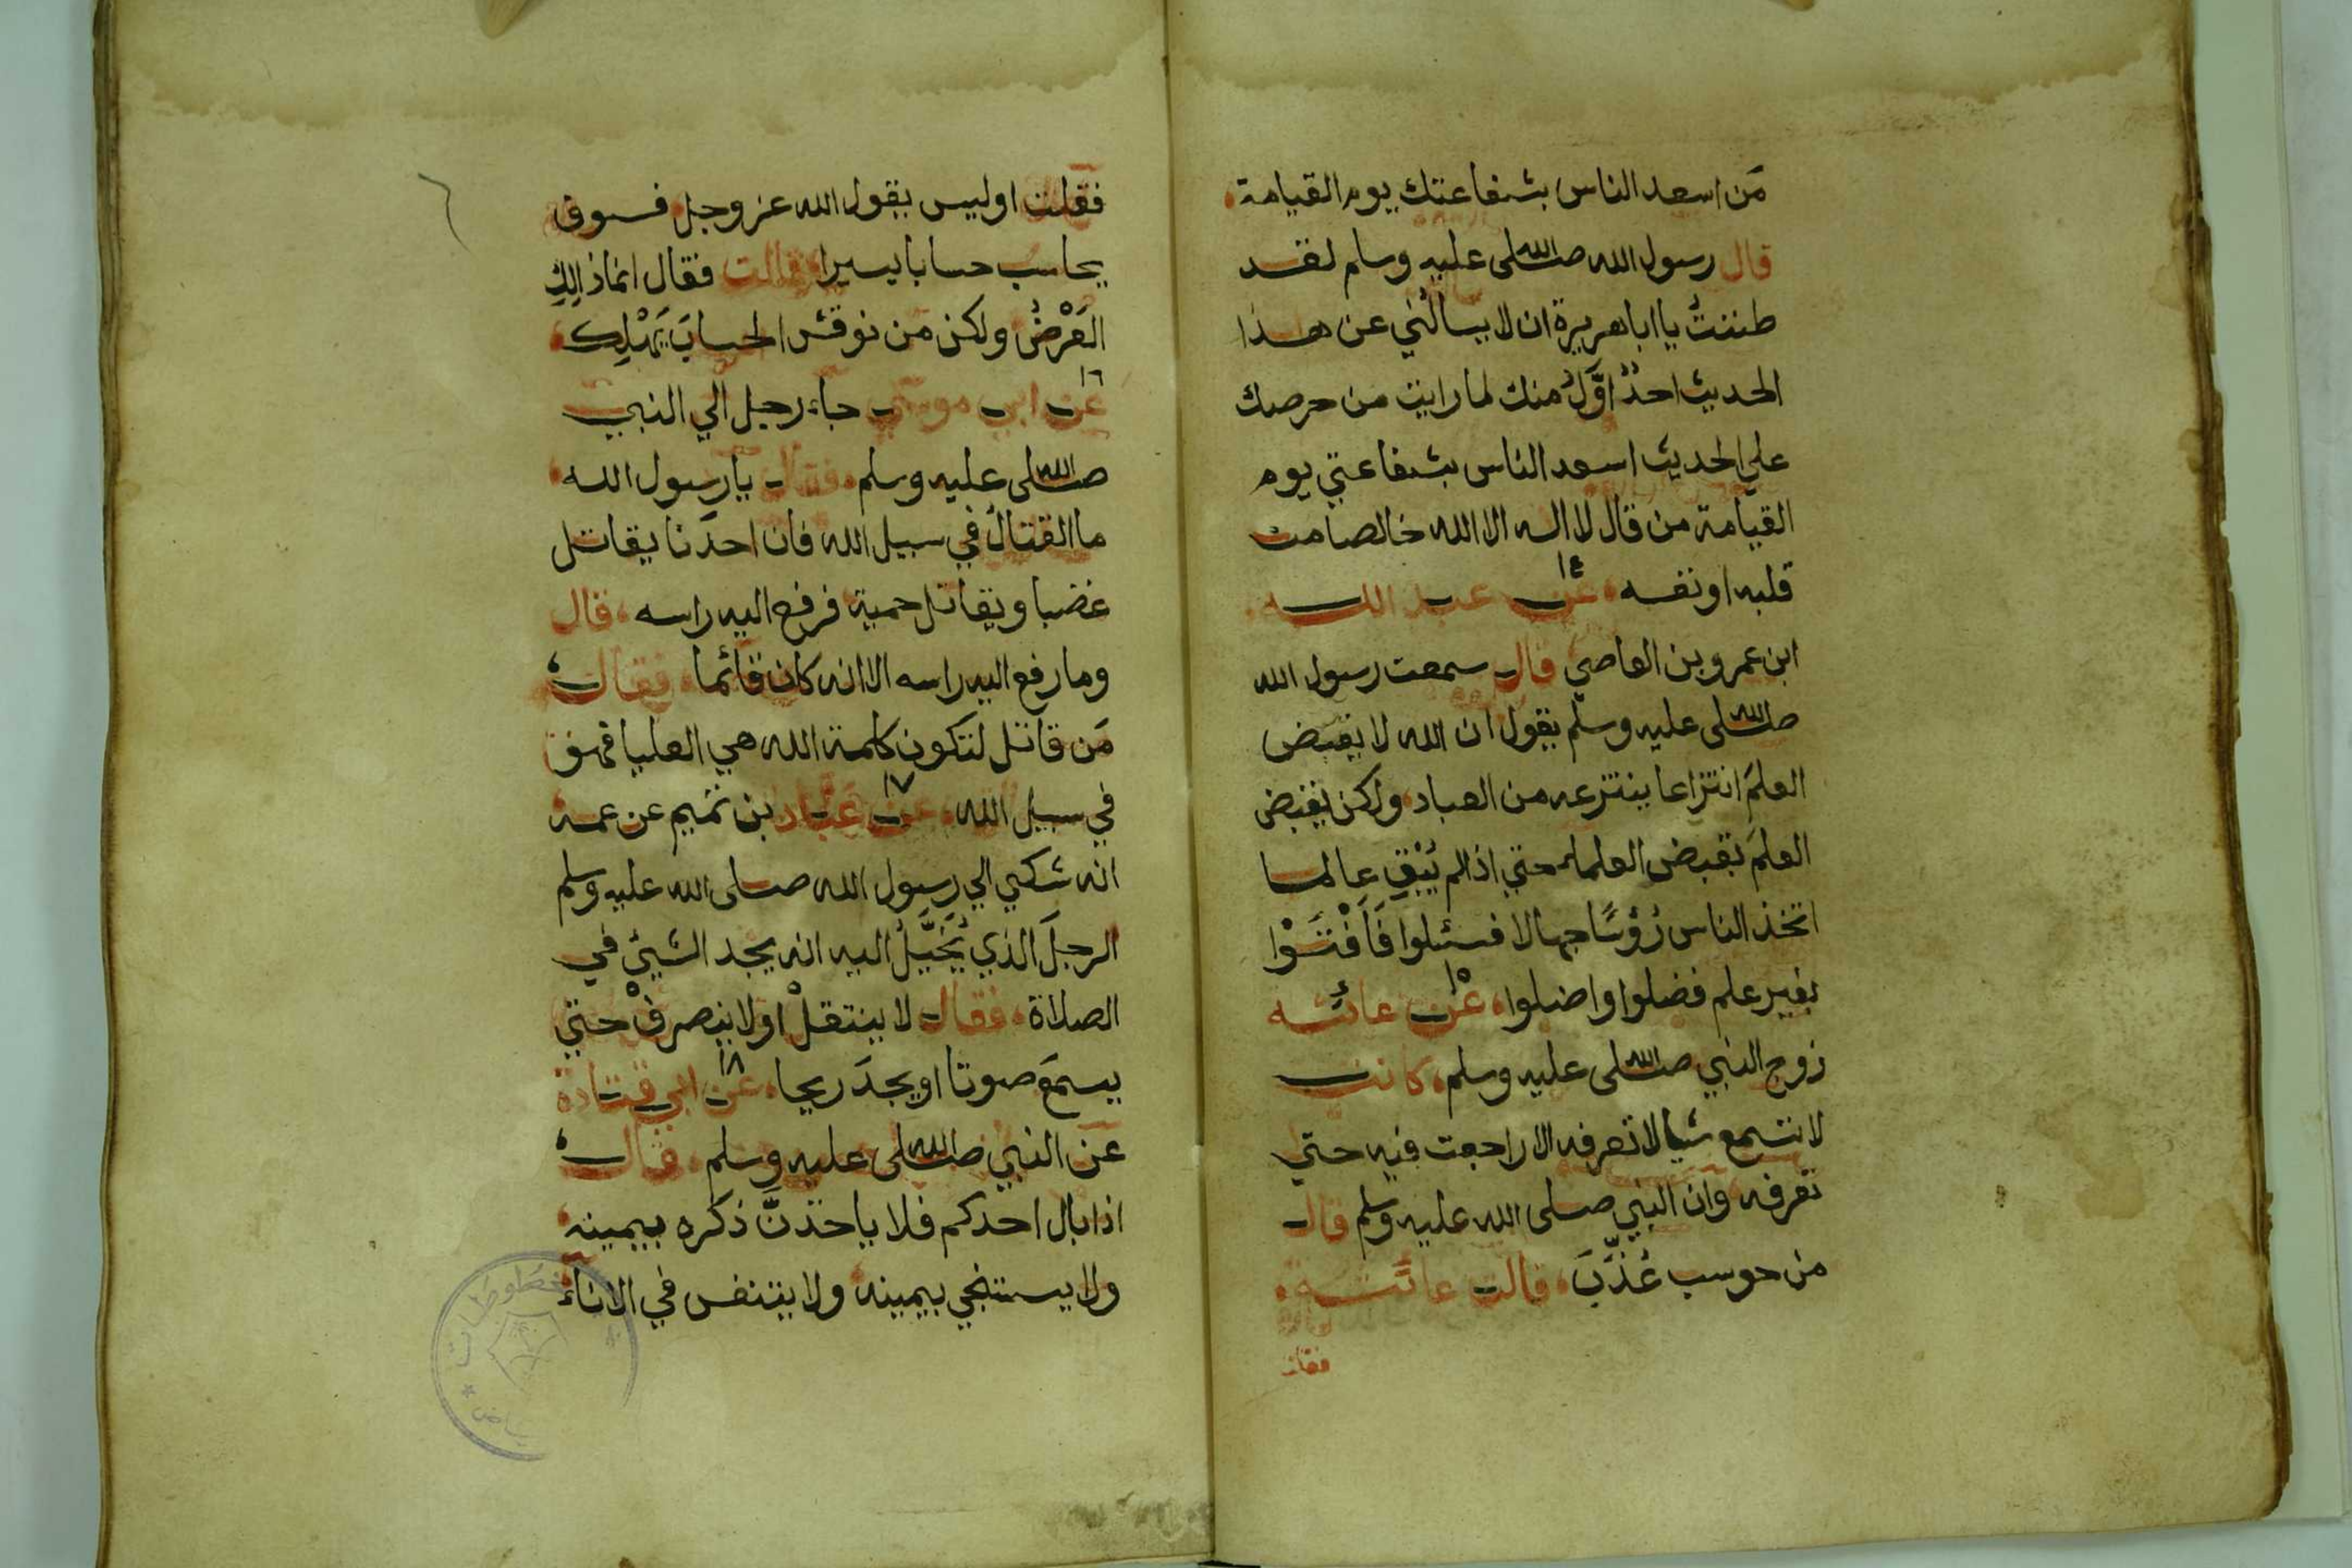 مَن اسعد الناس بشفاعتك يوم القيامة
قال رسول الله صلى الله عليه وسلم لقد
ظننتُ يا ابا هريرة ان لا يسالُني عن هذا
الحديث احدٌ اوَّلُ منك لما رايت من حرصك
علي الحديث اسعد الناس بشفاعتي يوم
القيامة من قال لا اله الا الله خالصا من
قلبه او نفسه ١٤ عن عبد الله
ابن عمرو بن العاصي قال سمعت رسول الله
صلى الله عليه وسلم يقول ان الله لا يقبض
العلمَ انتزاعا ينتزعه من العباد ولكن يقبض
العلمَ بقبض العلماء حتي اذا لم يُبْقِ عالما
اتخذ الناس رُؤسًا جهالا فسئلوا فَاَفْتَوْا
بغير علم فضلوا واضلوا ١٥ عن عائشه
زوج النبي صلى الله عليه وسلم كانت
لا تسمع شيا لا تعرفه الا راجعت فيه حتي
تعرفه وان النبي صلى الله عليه وسلم قال
من حوسب عُذِّبَ قالت عائشه
فقلت
فقلت اوليس يقول الله عز وجل فسوف
يحاسب حسابا يسيرا قالت فقال انما ذالِكِ
العَرْضُ ولكن مَن نوقش الحسابَ يَهْلِك
١٦ عن ابي موسي جاء رجل الي النبي
صلى الله عليه وسلم فقال يا رسول الله
ما القتالُ في سبيل الله فان احدَنا يقاتل
غضبا ويقاتل حمية فرفع اليه راسه قال
وما رفع اليه راسه الا انه كان قائما فقال
مَن قاتل لتكون كلمة الله هي العليا فهو
في سبيل الله ١٧ عن عَبَّاد بن تميم عن عمه
انه شكي الي رسول الله صلى الله عليه وسلم
الرجلَ الذي يُخَيَّلُ اليه انه يجد الشيئ في
الصلاة فقال لا ينتقلْ او لا ينصرفْ حتي
يسمعَ صوتا او يجدَ ريحا ١٨ عن ابي قتادة
عن النبي صلى الله عليه وسلم قال
اذا بال احدكم فلا ياخذنَّ ذكره بيمينه
ولا يستنجي بيمينه ولا يتنفس في الاناء